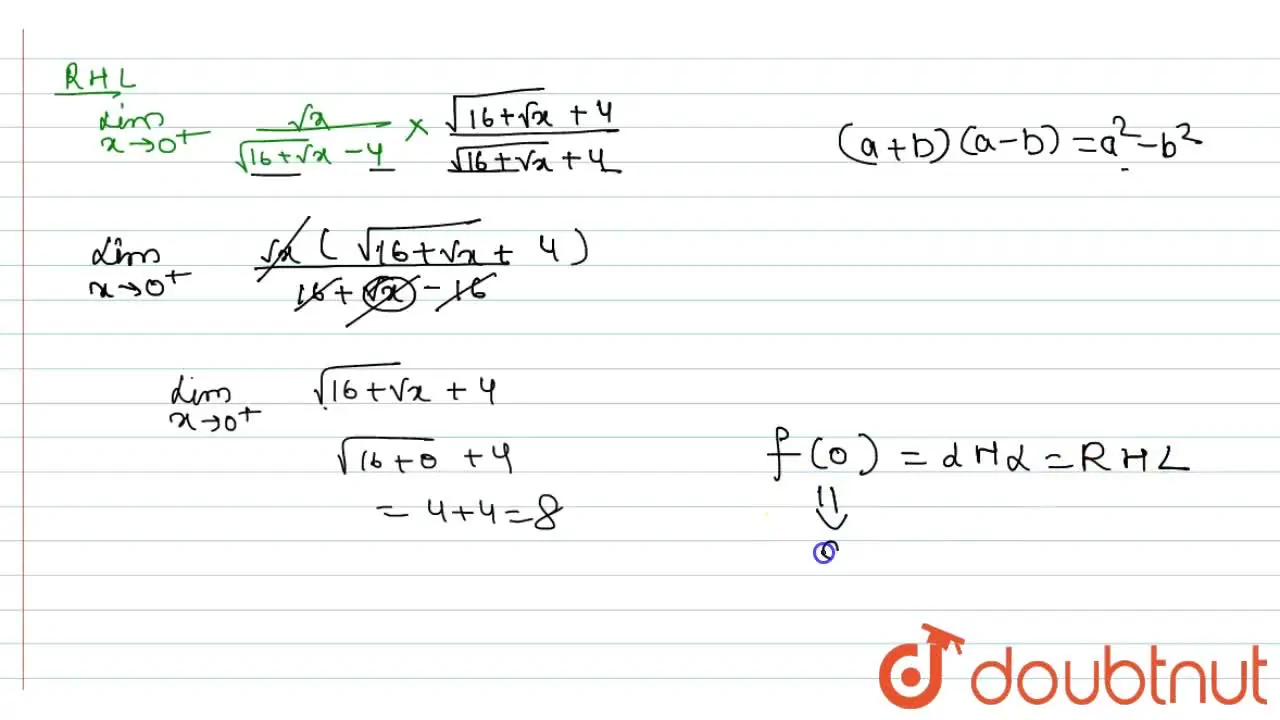 RHL
lim x→0+ √x / (√(16+√x) - 4) × (√(16+√x) + 4) / (√(16+√x) + 4)
(a+b)(a-b) = a² - b²
lim x→0+ √x (√(16+√x) + 4) / (16 + √x - 16)
lim x→0+ √(16+√x) + 4
√(16+0) + 4
= 4+4 = 8
f(0) = LHL = RHL
⇓
doubtnut